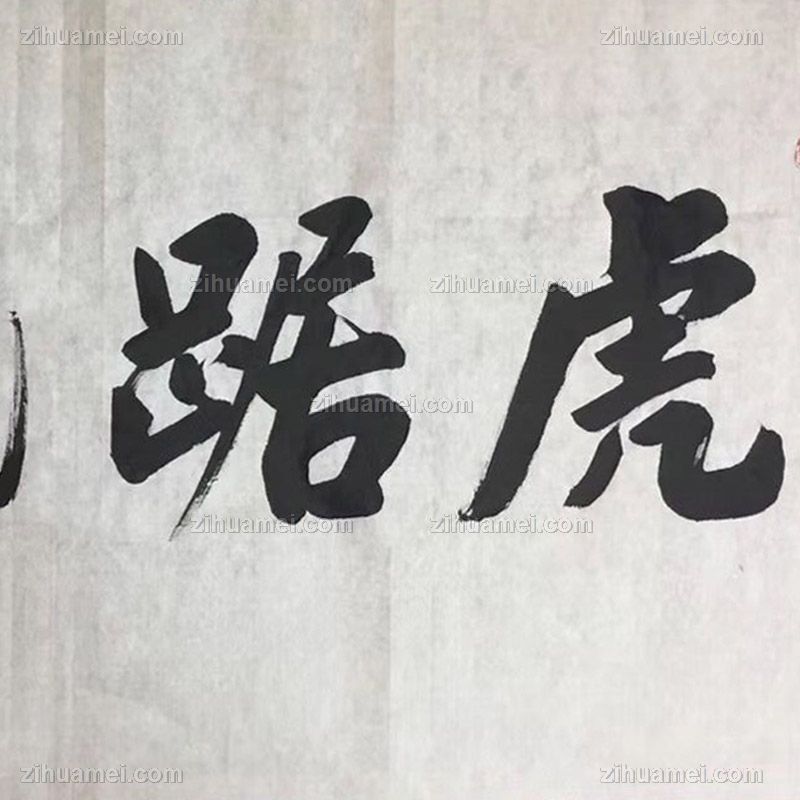 虎踞
zihuamei.com
zihuamei.com
zihuamei.com
zihuamei.com
zihuamei.com
zihuamei.com
zihuamei.com
zihuamei.com
zihuamei.com